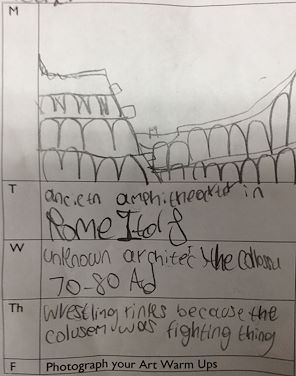 M
T
ancietn amphitheater in
Rome Italy
W
unknown architect the Colossu
70-80 Ad
Th
Wrestling rinks because the
coluseum was fighting thing
F
Photograph your Art Warm Ups